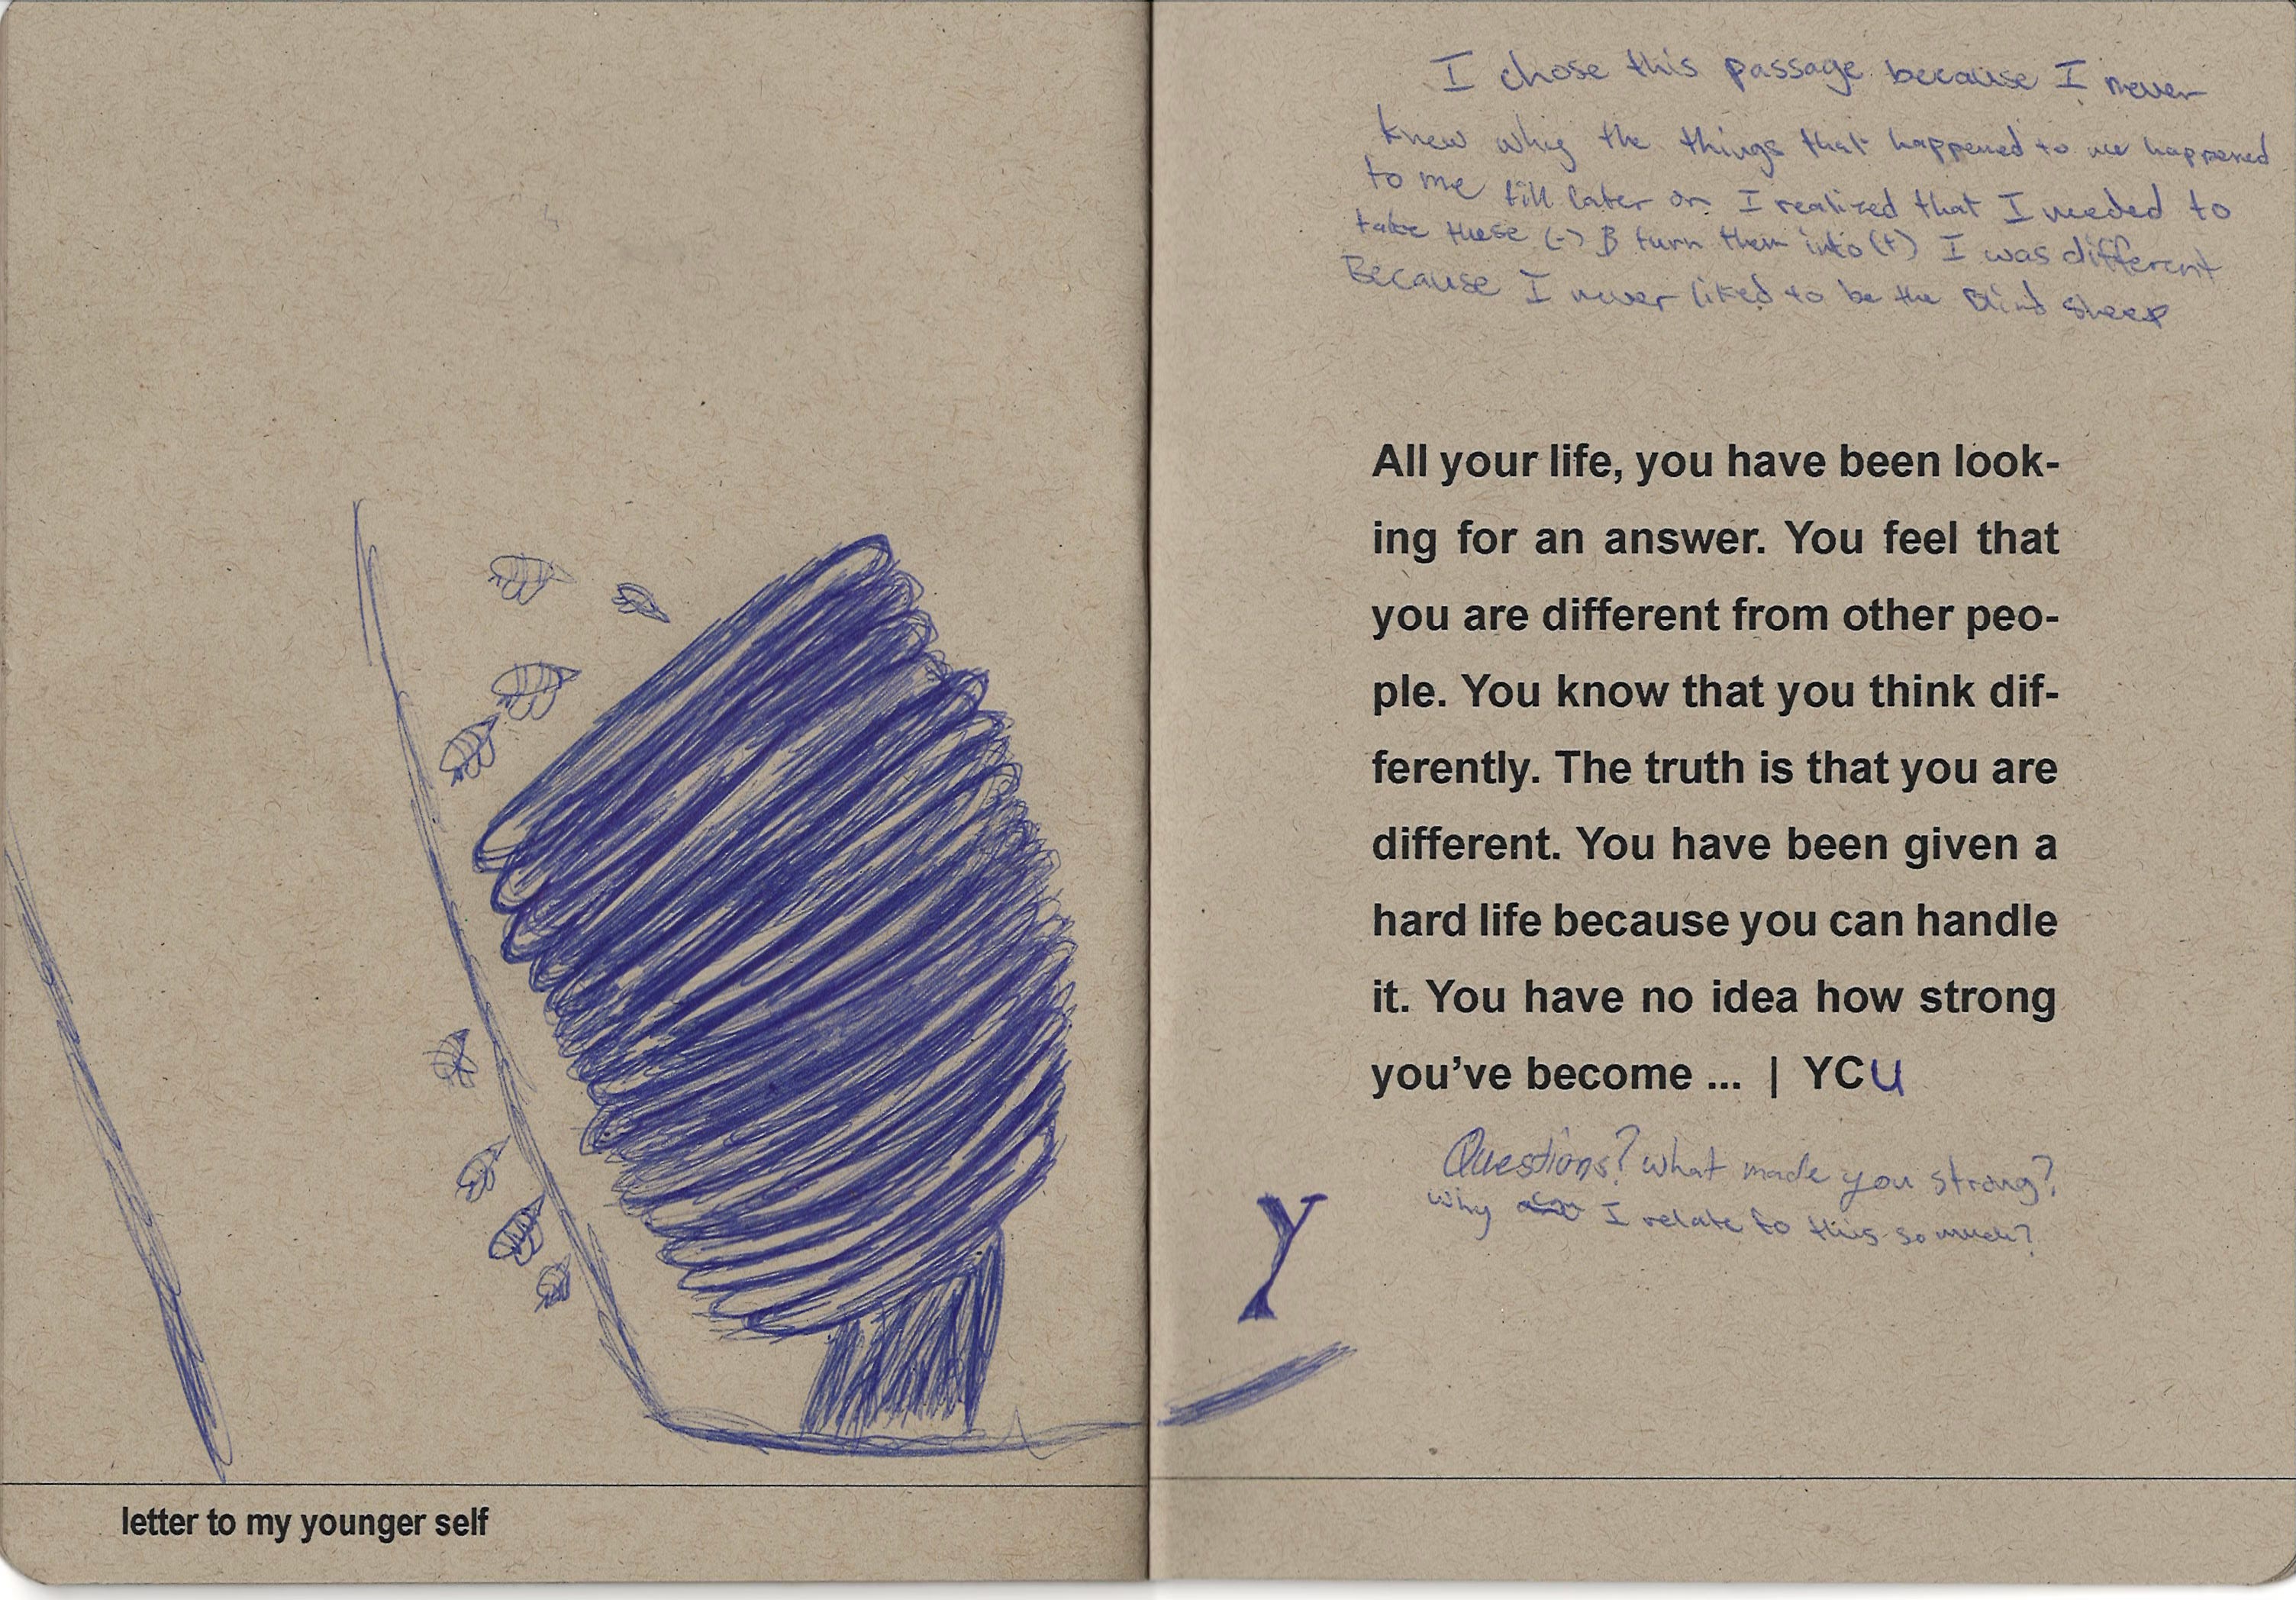 I chose this passage because I never
knew why the things that happened to me happened
to me till later on I realized that I needed to
take these (-) & turn them into (+) I was different
Because I never liked to be the Blind sheep
All your life, you have been look-
ing for an answer. You feel that
you are different from other peo-
ple. You know that you think dif-
ferently. The truth is that you are
different. You have been given a
hard life because you can handle
it. You have no idea how strong
you've become ... | YCU
Questions? what made you strong?
why I relate to this so much?
Y
letter to my younger self